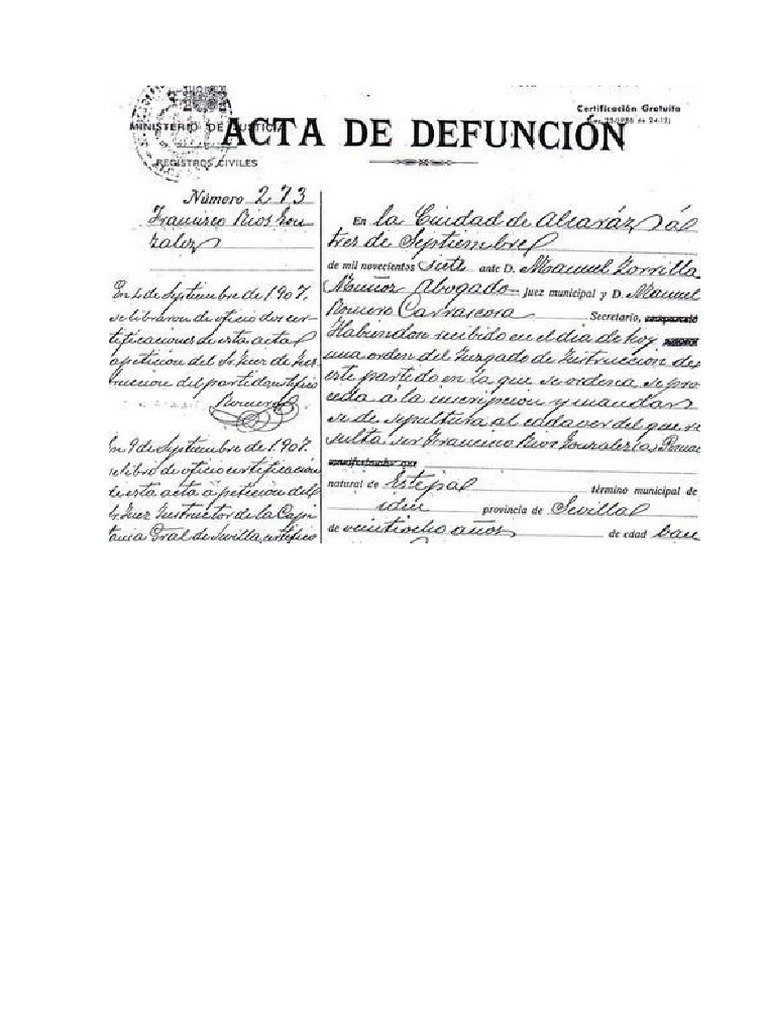 Certificación Gratuita
(Ley 25-1986 de 24-12)
MINISTERIO DE JUSTICIA
ACTA DE DEFUNCIÓN
REGISTROS CIVILES
Número 273
Francisco Rios Gon
zalez
En 4 de Septiembre de 1907.
se libraron de oficio dos cer-
tificaciones de esta acta
a peticion del Sr Juez de Ins
truccion del partido certifico
Romero
En 9 de Septiembre de 1907.
se libro de oficio certificación
de esta acta a peticion del
Sr Juez Instructor de la Capi
tania Gral de Sevilla, certifico
En la Ciudad de Alcaráz á
tres de Septiembre
de mil novecientos siete ante D. Manuel Zorrilla
Muñoz Abogado Juez municipal y D. Manuel
Romero Carrascosa Secretario, compareció
Habiendose recibido en el dia de hoy
una orden del Juzgado de Instruccion de
este partido en la que se ordena se pro
ceda á la inscripcion y mandar
se de sepultura al cadaver del que re
sulta ser Francisco Rios Gonzalez (a) Pernal
manifestando que
natural de Estepa término municipal de
idem provincia de Sevilla
de veintiocho años de edad